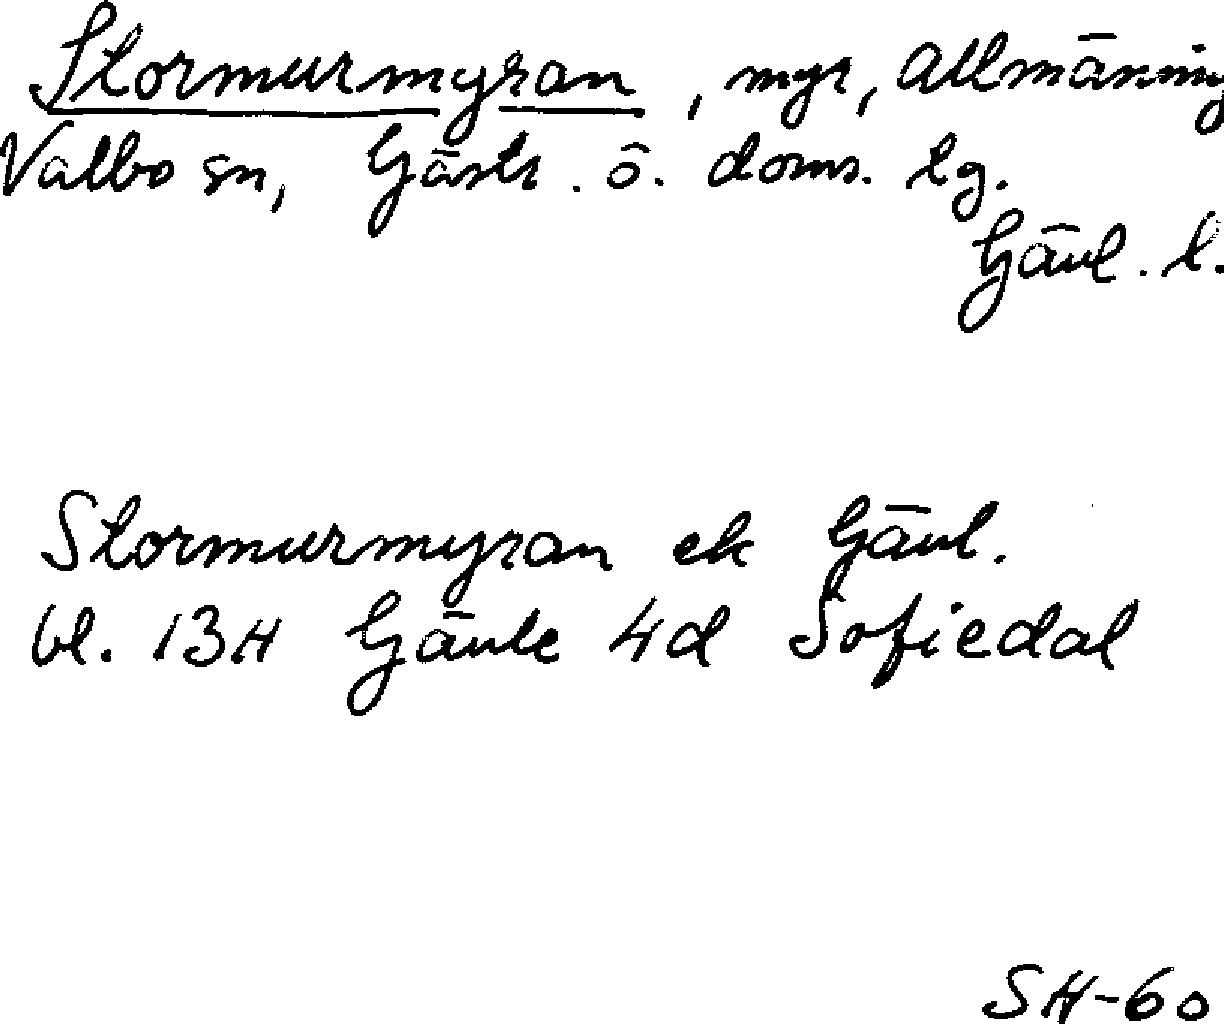 Stormurmyran, myr, Allmänning
Valbo sn, Gästr. ö. doms. lg.
Gävl. l.
Stormurmyran ek Gävl.
bl. 13H Gävle 4d Sofiedal
SH-60